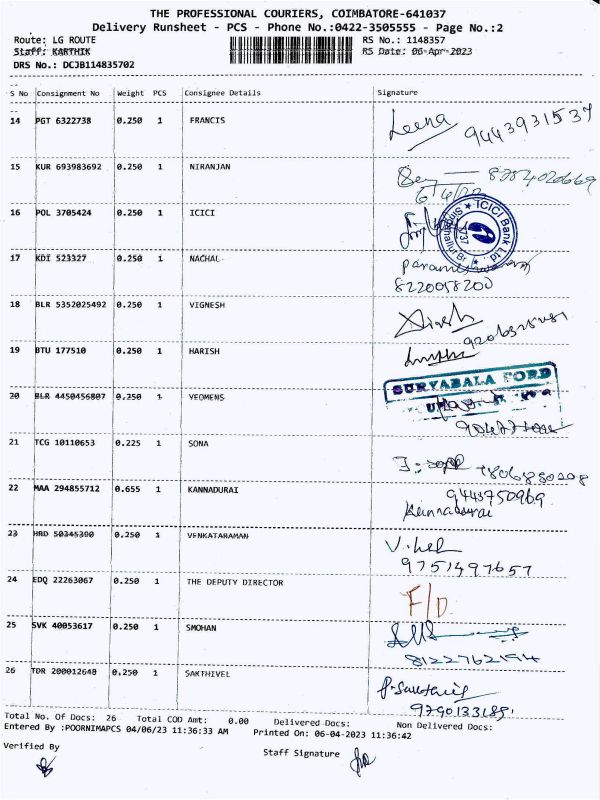 THE PROFESSIONAL COURIERS, COIMBATORE-641037
Delivery Runsheet - PCS - Phone No.:0422-3505555 - Page No.:2
Route: LG ROUTE RS No.: 1148357
Staff: KARTHIK RS Date: 06-Apr-2023
DRS No.: DCJB114835702
S No Consignment No Weight PCS Consignee Details Signature
14 PGT 6322738 0.250 1 FRANCIS Leena 9443931537
15 KUR 693983692 0.250 1 NIRANJAN
16 POL 3705424 0.250 1 ICICI
ICICI Bank Ltd
17 KDI 523327 0.250 1 NACHAL
8220058200
18 BLR 5352025492 0.250 1 VIGNESH
19 BTU 177510 0.250 1 HARISH
SURYABALA FORD
20 BLR 4450456807 0.250 1 YEOMENS
21 TCG 10110653 0.225 1 SONA
22 MAA 294855712 0.655 1 KANNADURAI 9443750969
Kannadurai
23 HRD 50345390 0.250 1 VENKATARAMAN
9751497657
24 EDQ 22263067 0.250 1 THE DEPUTY DIRECTOR F/D
25 SVK 40053617 0.250 1 SMOHAN
8122762194
26 TDR 200012640 0.250 1 SAKTHIVEL
Total No. Of Docs: 26 Total COD Amt: 0.00 Delivered Docs: Non Delivered Docs:
Entered By :POORNIMAPCS 04/06/23 11:36:33 AM Printed On: 06-04-2023 11:36:42
Verified By Staff Signature